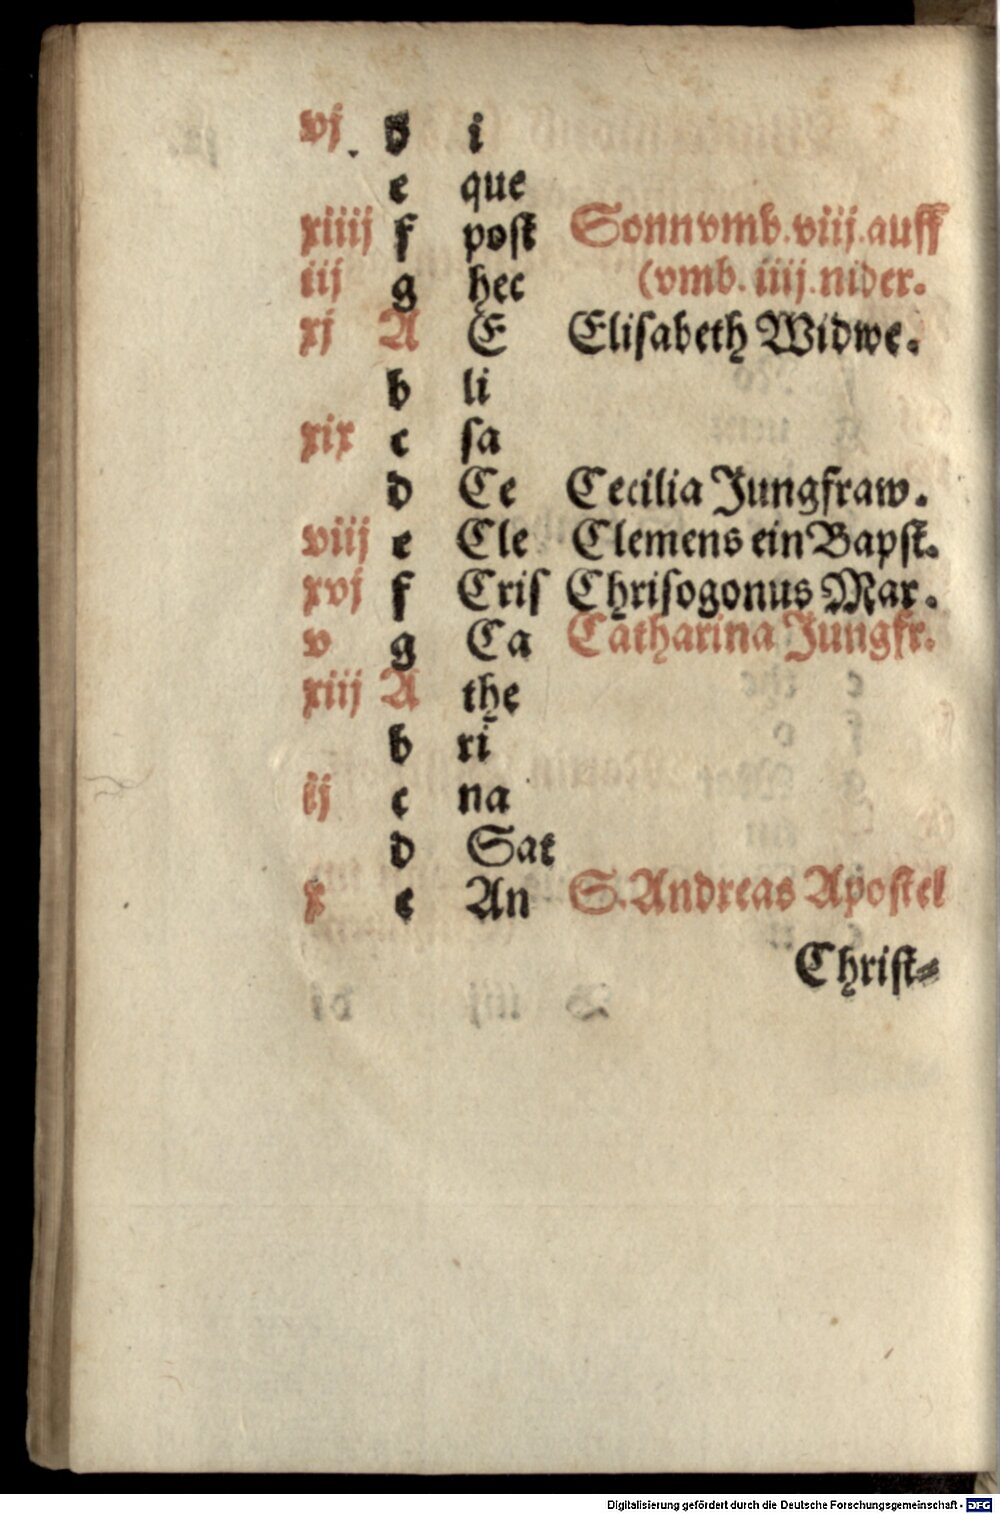 vj d i
e que
xiiij f post Sonn vmb. viij. auff
iij g hec (vmb. iiij. nider.
xj A E Elisabeth Widwe.
b li
xix c sa
d Ce Cecilia Jungfraw.
viij e Cle Clemens ein Bapst.
xvj f Cris Chrisogonus Mar.
v g Ca Catharina Jungfr.
xiij A the
b ri
ij c na
d Sat
x e An S. Andreas Apostel
Christ-
Digitalisierung gefördert durch die Deutsche Forschungsgemeinschaft - DFG